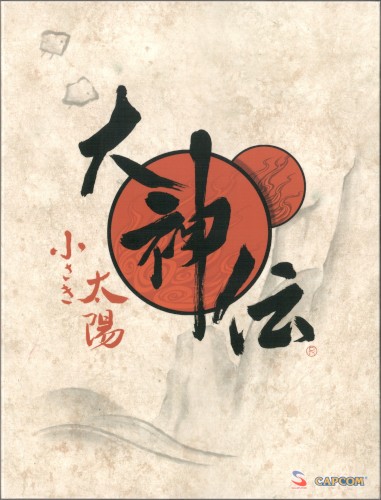 大神伝
小さき
太陽
R
CAPCOM